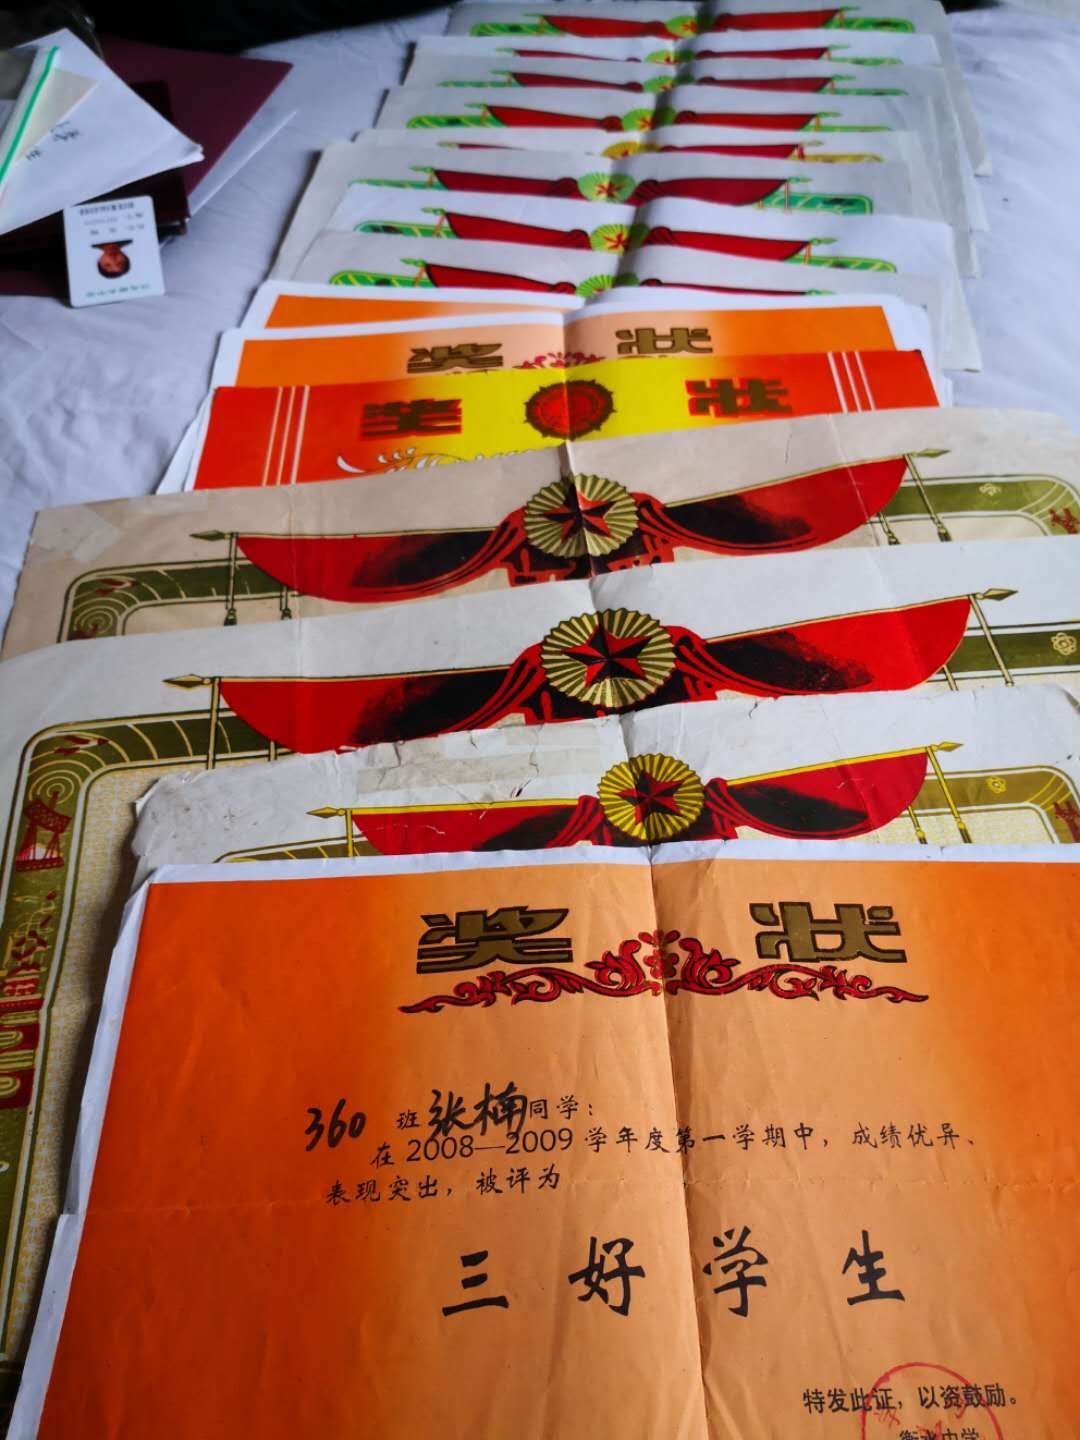 奖 状
奖 状
奖 状
360 班 张楠 同学：
在 2008—2009 学年度第一学期中，成绩优异、
表现突出，被评为
三 好 学 生
特发此证，以资鼓励。
衡水中学